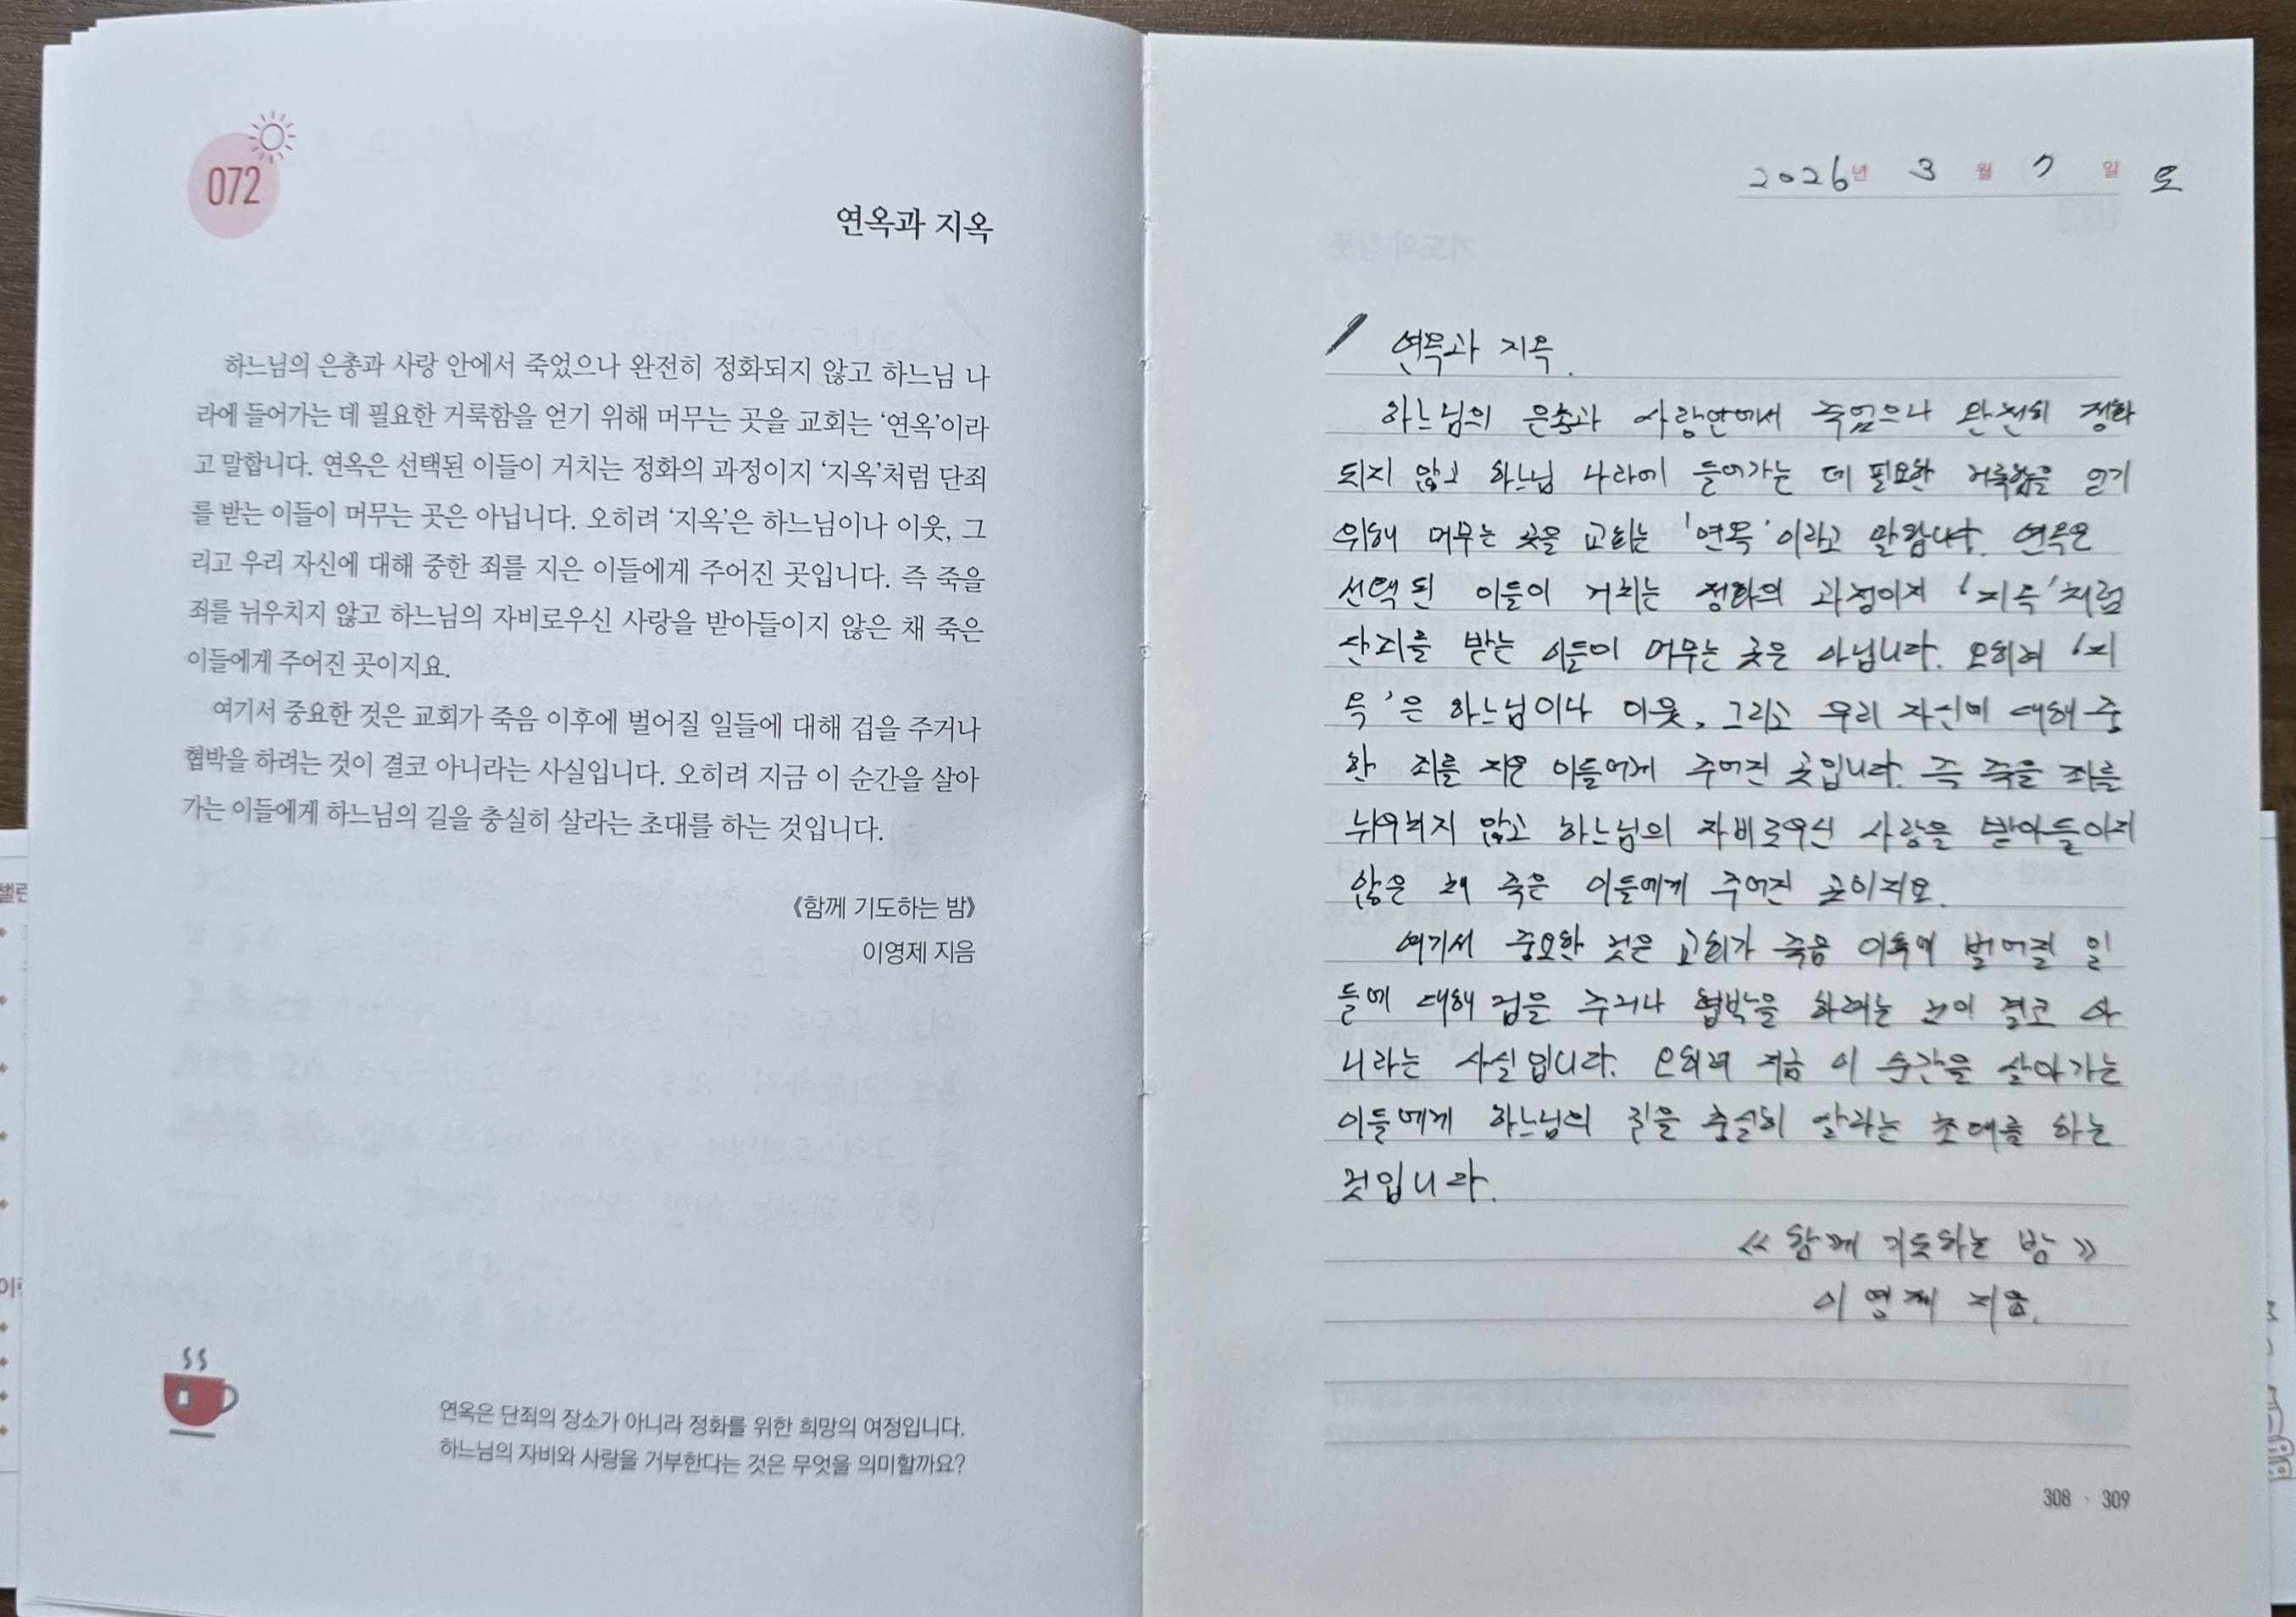 072
연옥과 지옥
하느님의 은총과 사랑 안에서 죽었으나 완전히 정화되지 않고 하느님 나
라에 들어가는 데 필요한 거룩함을 얻기 위해 머무는 곳을 교회는 ‘연옥’이라
고 말합니다. 연옥은 선택된 이들이 거치는 정화의 과정이지 ‘지옥’처럼 단죄
를 받는 이들이 머무는 곳은 아닙니다. 오히려 ‘지옥’은 하느님이나 이웃, 그
리고 우리 자신에 대해 중한 죄를 지은 이들에게 주어진 곳입니다. 즉 죽을
죄를 뉘우치지 않고 하느님의 자비로우신 사랑을 받아들이지 않은 채 죽은
이들에게 주어진 곳이지요.
여기서 중요한 것은 교회가 죽음 이후에 벌어질 일들에 대해 겁을 주거나
협박을 하려는 것이 결코 아니라는 사실입니다. 오히려 지금 이 순간을 살아
가는 이들에게 하느님의 길을 충실히 살라는 초대를 하는 것입니다.
《함께 기도하는 밤》
이영제 지음
연옥은 단죄의 장소가 아니라 정화를 위한 희망의 여정입니다.
하느님의 자비와 사랑을 거부한다는 것은 무엇을 의미할까요?
2026년 3월 7일 토
연옥과 지옥.
하느님의 은총과 사랑안에서 죽었으나 완전히 정화
되지 않고 하느님 나라에 들어가는 데 필요한 거룩함을 얻기
위해 머무는 곳을 교회는 '연옥'이라고 말합니다. 연옥은
선택된 이들이 거치는 정화의 과정이지 '지옥'처럼
단죄를 받는 이들이 머무는 곳은 아닙니다. 오히려 '지
옥'은 하느님이나 이웃, 그리고 우리 자신에 대해 중
한 죄를 지은 이들에게 주어진 곳입니다. 즉 죽을 죄를
뉘우치지 않고 하느님의 자비로우신 사랑을 받아들이지
않은 채 죽은 이들에게 주어진 곳이지요.
여기서 중요한 것은 교회가 죽음 이후에 벌어질 일
들에 대해 겁을 주거나 협박을 하려는 것이 결코 아
니라는 사실입니다. 오히려 지금 이 순간을 살아가는
이들에게 하느님의 길을 충실히 살라는 초대를 하는
것입니다.
《함께 기도하는 밤》
이영제 지음.
308 · 309